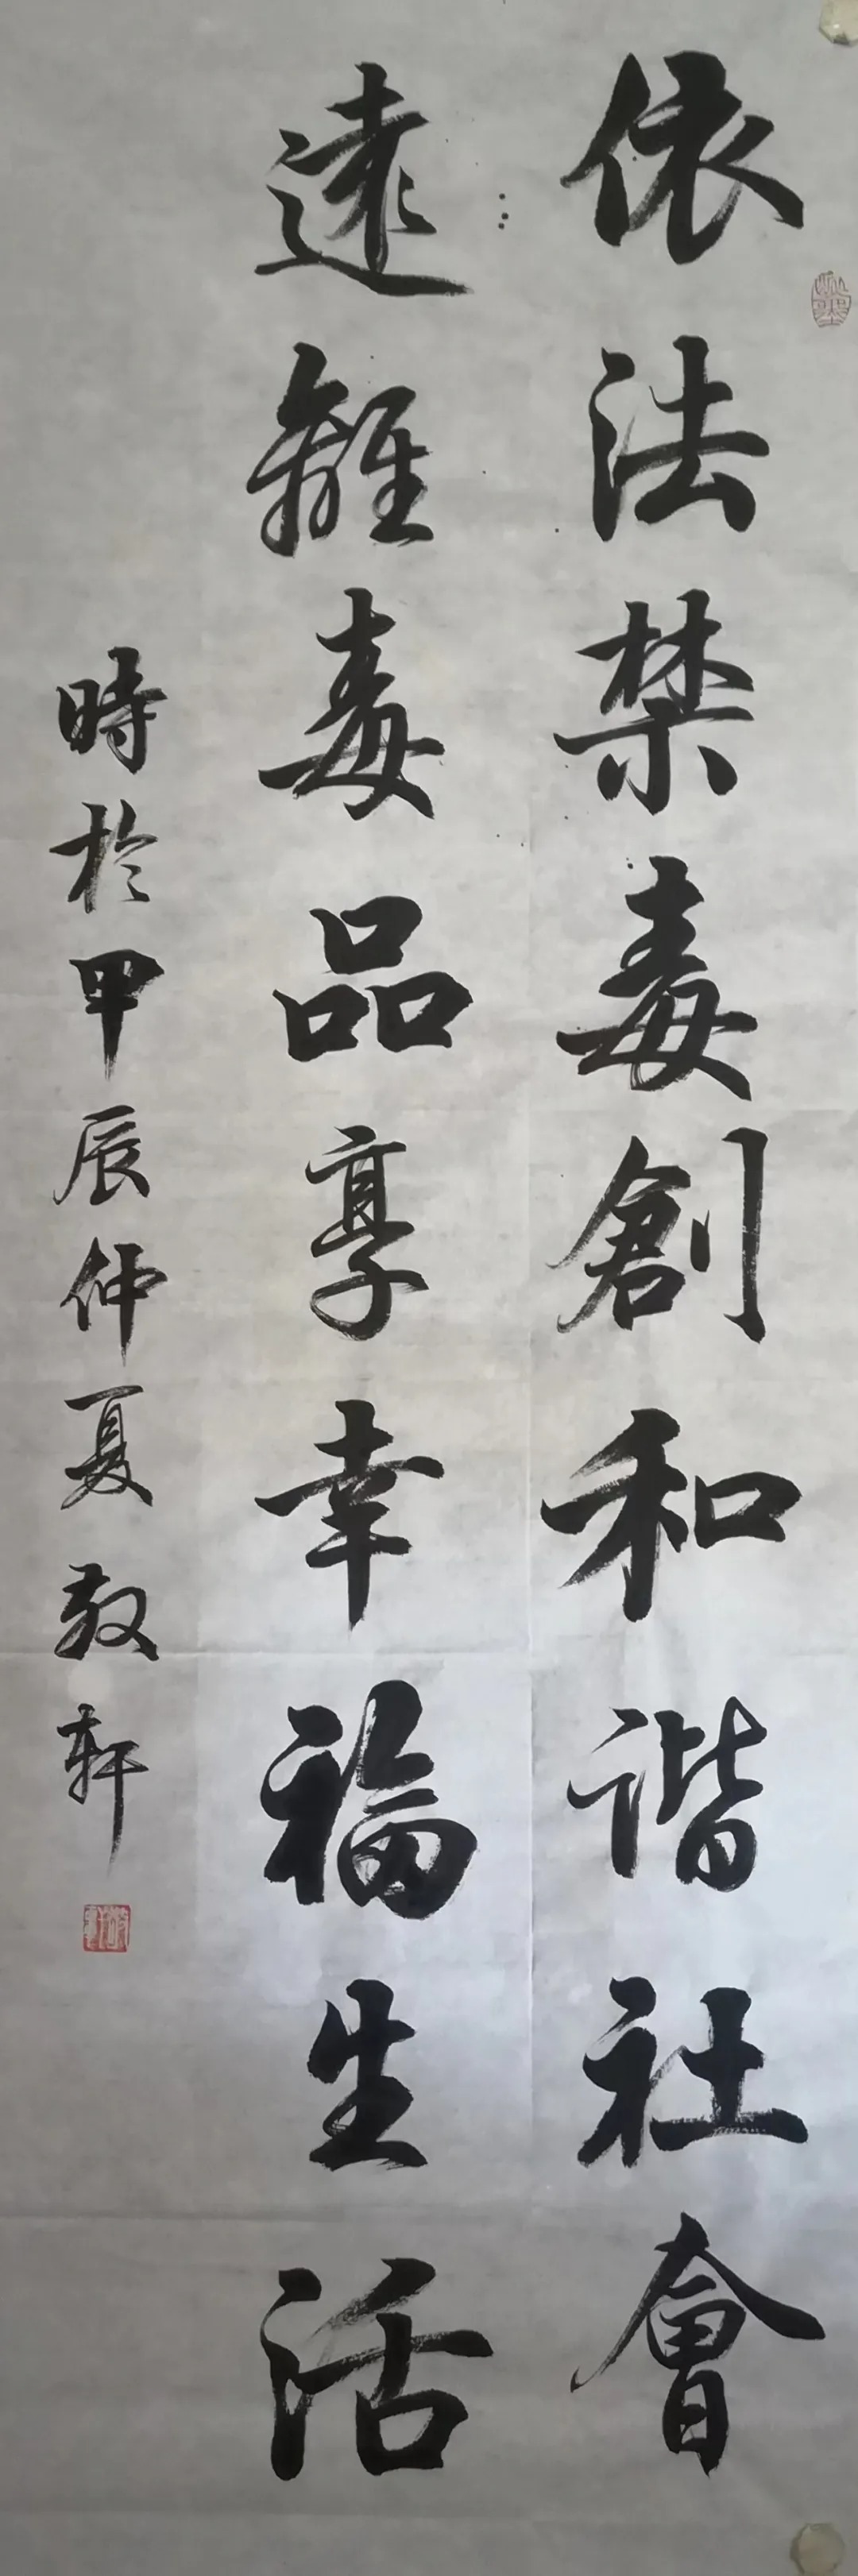 依法禁毒創和谐社會
遠離毒品享幸福生活
時於甲辰仲夏敬轩